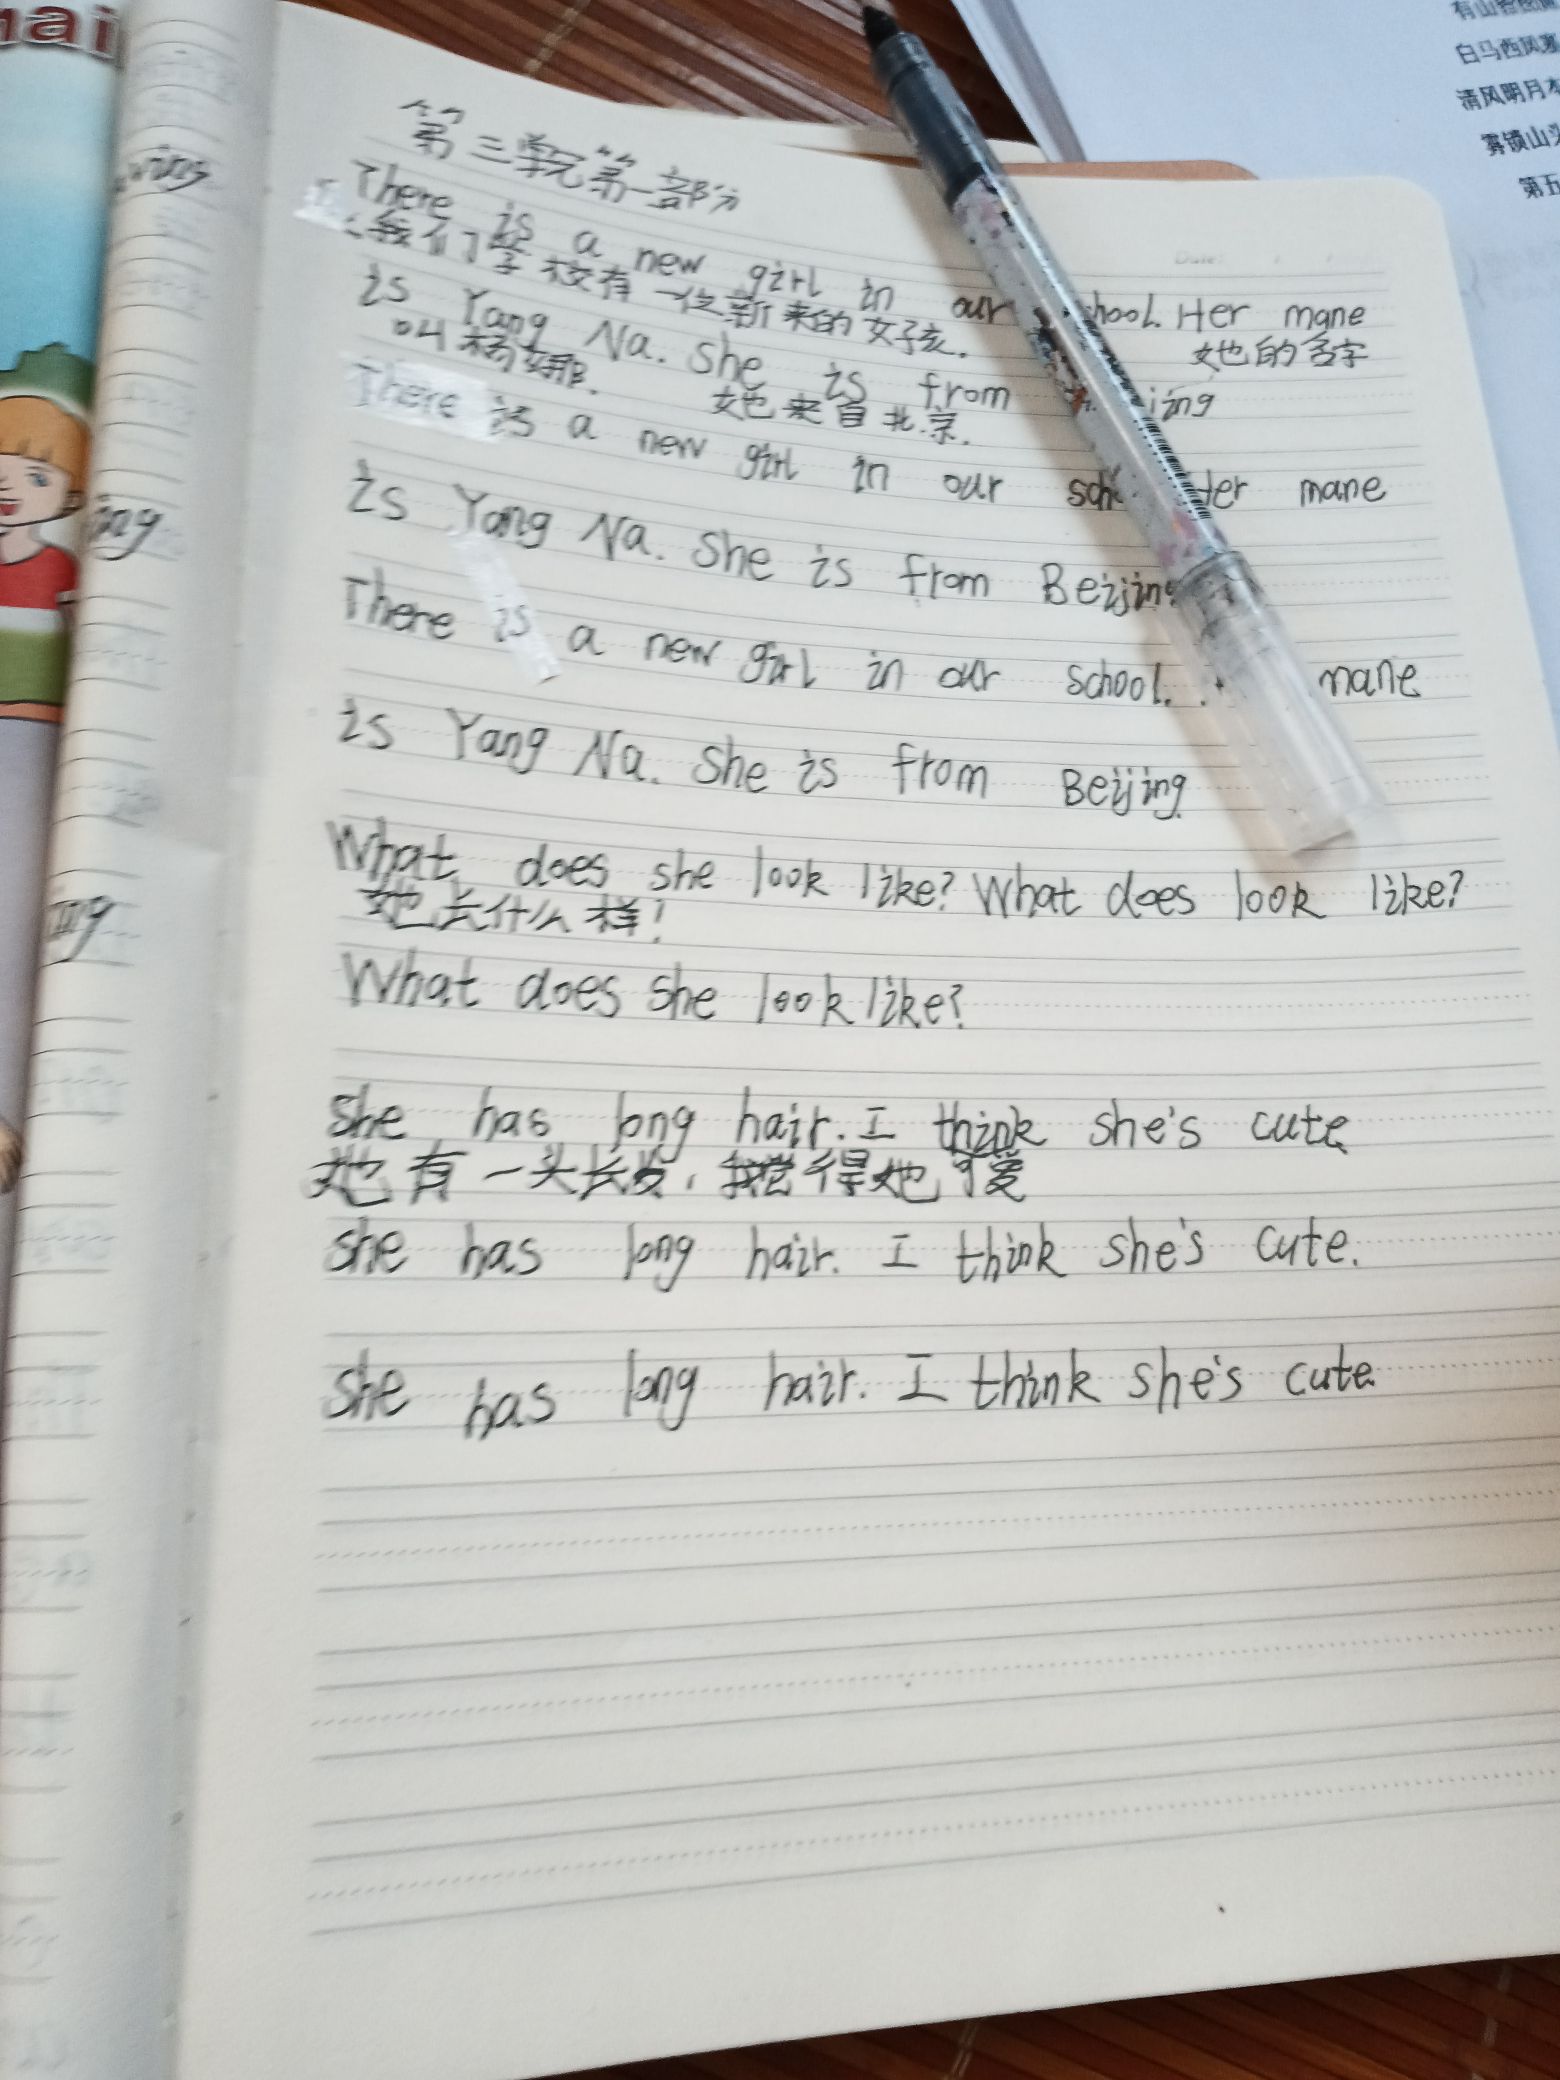 第三单元第一部分
There is a new girl in our hool. Her mane
我们学校有一位新来的女孩. 她的名字
is Yang Na. She is from ijing
叫杨娜. 她来自北京.
There is a new girl in our sch Her mane
is Yang Na. She is from Beijing
There is a new girl in our school. mane
is Yang Na. She is from Beijing.
What does she look like? What does look like?
她长什么样!
What does she look like?
She has long hair. I think she's cute.
她有一头长发, 我觉得她可爱
She has long hair. I think she's cute.
She has long hair. I think she's cute.
hai
wing
ing
ing
Date:
白马西风塞
清风明月本
雾锁山头
第五